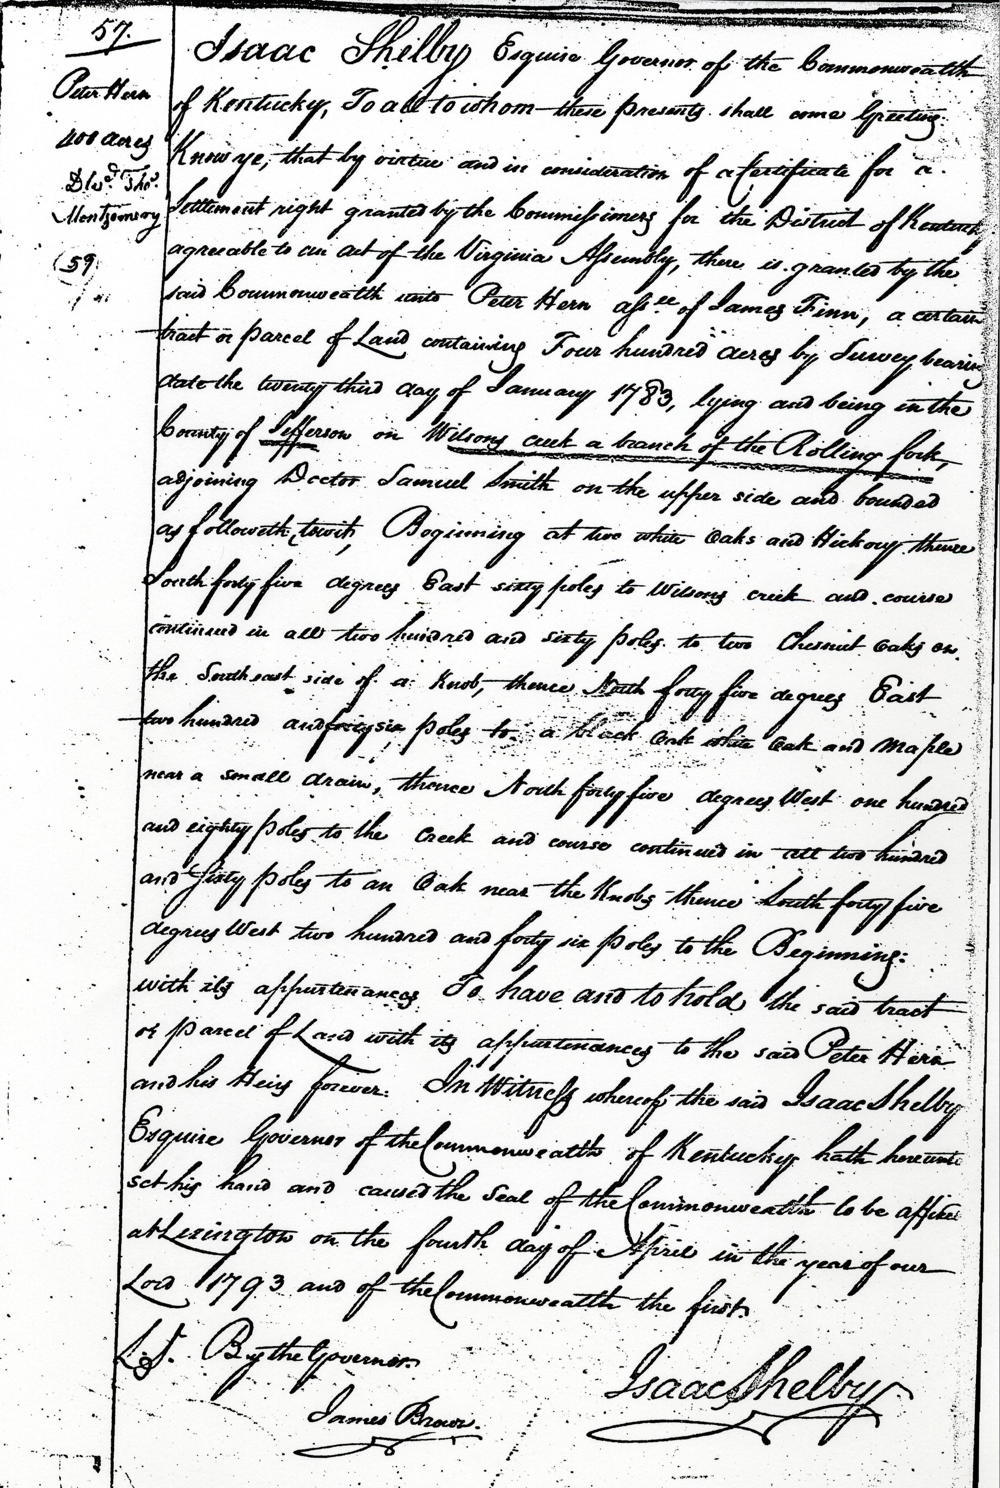 57.
Peter Hern
400 acres
Dld. Thos.
Montgomery
(59)
Isaac Shelby Esquire Governor of the Commonwealth
of Kentucky, To all to whom these presents shall come Greeting.
Know ye, that by virtue and in consideration of a Certificate for a
Settlement right granted by the Commissioners for the District of Kentucky
agreeable to an act of the Virginia Assembly, there is granted by the
said Commonwealth unto Peter Hern assee. of James Finn, a certain
tract or parcel of Land containing Four hundred acres by Survey bearing
date the twenty third day of January 1783, lying and being in the
County of Jefferson on Wilsons creek a branch of the Rolling fork,
adjoining Doctor Samuel Smith on the upper side and bounded
as followeth, towit, Beginning at two white Oaks and Hickory thence
South forty five degrees East sixty poles to Wilsons creek and course
continued in all two hundred and sixty poles to two Chesnut Oaks on
the South east side of a Knob, thence North forty five degrees East
two hundred and forty six poles to a black Oak white Oak and Maple
near a small drain, thence North forty five degrees West one hundred
and eighty poles to the Creek and course continued in all two hundred
and Sixty poles to an Oak near the Knobs thence South forty five
degrees West two hundred and forty six poles to the Beginning:
with its appurtenances To have and to hold the said tract
or parcel of Land with its appurtenances to the said Peter Hern
and his Heirs forever. In Witness whereof the said Isaac Shelby
Esquire Governor of the Commonwealth of Kentucky hath hereunto
set his hand and caused the Seal of the Commonwealth to be affixed
at Lexington on the fourth day of April in the year of our
Lord 1793 and of the Commonwealth the first.
L.S. By the Governor
Isaac Shelby
James Brown.